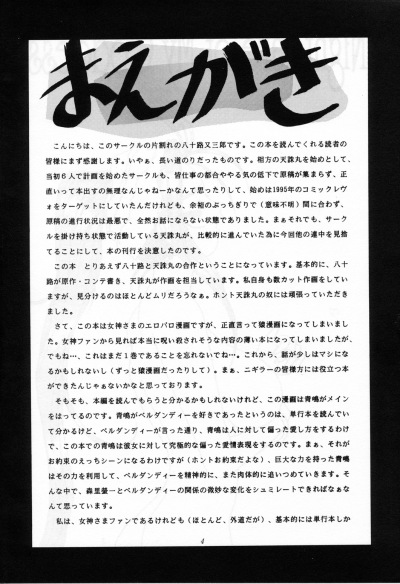 まえがき
こんにちは、このサークルの片割れの八十路又三郎です。この本を読んでくれる読者の
皆様にまず感謝します。いやぁ、長い道のりだったものです。相方の天誅丸を始めとして、
当初6人で計画を始めたサークルも、皆仕事の都合ややる気の低下で原稿が集まらず、正
直いって本出すの無理なんじゃねーかなんて思ったりして、始めは1995年のコミックレヴ
ォをターゲットにしていたんだけれども、余裕のぶっちぎりで(意味不明)間に合わず、
原稿の進行状況は最悪で、全然お話にならない状態でありました。まぁそれでも、サーク
ルを掛け持ち状態で活動している天誅丸が、比較的に進んでいた為に今回他の連中を見捨
てることにして、本の刊行を決意したのです。
この本 とりあえず八十路と天誅丸の合作ということになっています。基本的に、八十
路が原作・コンテ書き、天誅丸が作画を担当しています。私自身も数カット作画をしてい
ますが、見分けるのはほとんどムリだろうなぁ。ホント天誅丸の奴には頑張っていただき
ました。
さて、この本は女神さまのエロパロ漫画ですが、正直言って猿漫画になってしまいまし
た。女神さまファンから見れば本当に呪い殺されそうな内容の薄い本になってしまいましたが、
でもね…、これはまだ1巻であることを忘れないでね…。これから、話が少しはマシにな
るかもしれないし(ずっと猿漫画だったりして)。まぁ、ニギラーの皆様方には役立つ本
ができたんじゃぁないかなと思っております。
そもそも、本編を読んでもらうと分かるかもしれないけど、この漫画は青嶋がメイン
をはってるのです。青嶋がベルダンディーを好きであったというのは、単行本を読んでい
て分かるけど、ベルダンディーが言った通り、青嶋は人に対して偏った愛し方をするわけ
で、この本での青嶋は彼女に対して究極的な偏った愛情表現をするのです。まぁ、それが
お約束のえっちシーンになるわけですが(ホントお約束だよな)、巨大な力を持った青嶋
はその力を利用して、ベルダンディーを精神的に、また肉体的に追いつめていきます。そ
んな中で、森里螢一とベルダンディーの関係の微妙な変化をシュミレートできればなぁな
んて思っています。
私は、女神さまファンであるけれども(ほとんど、外道だが)、基本的には単行本しか
4